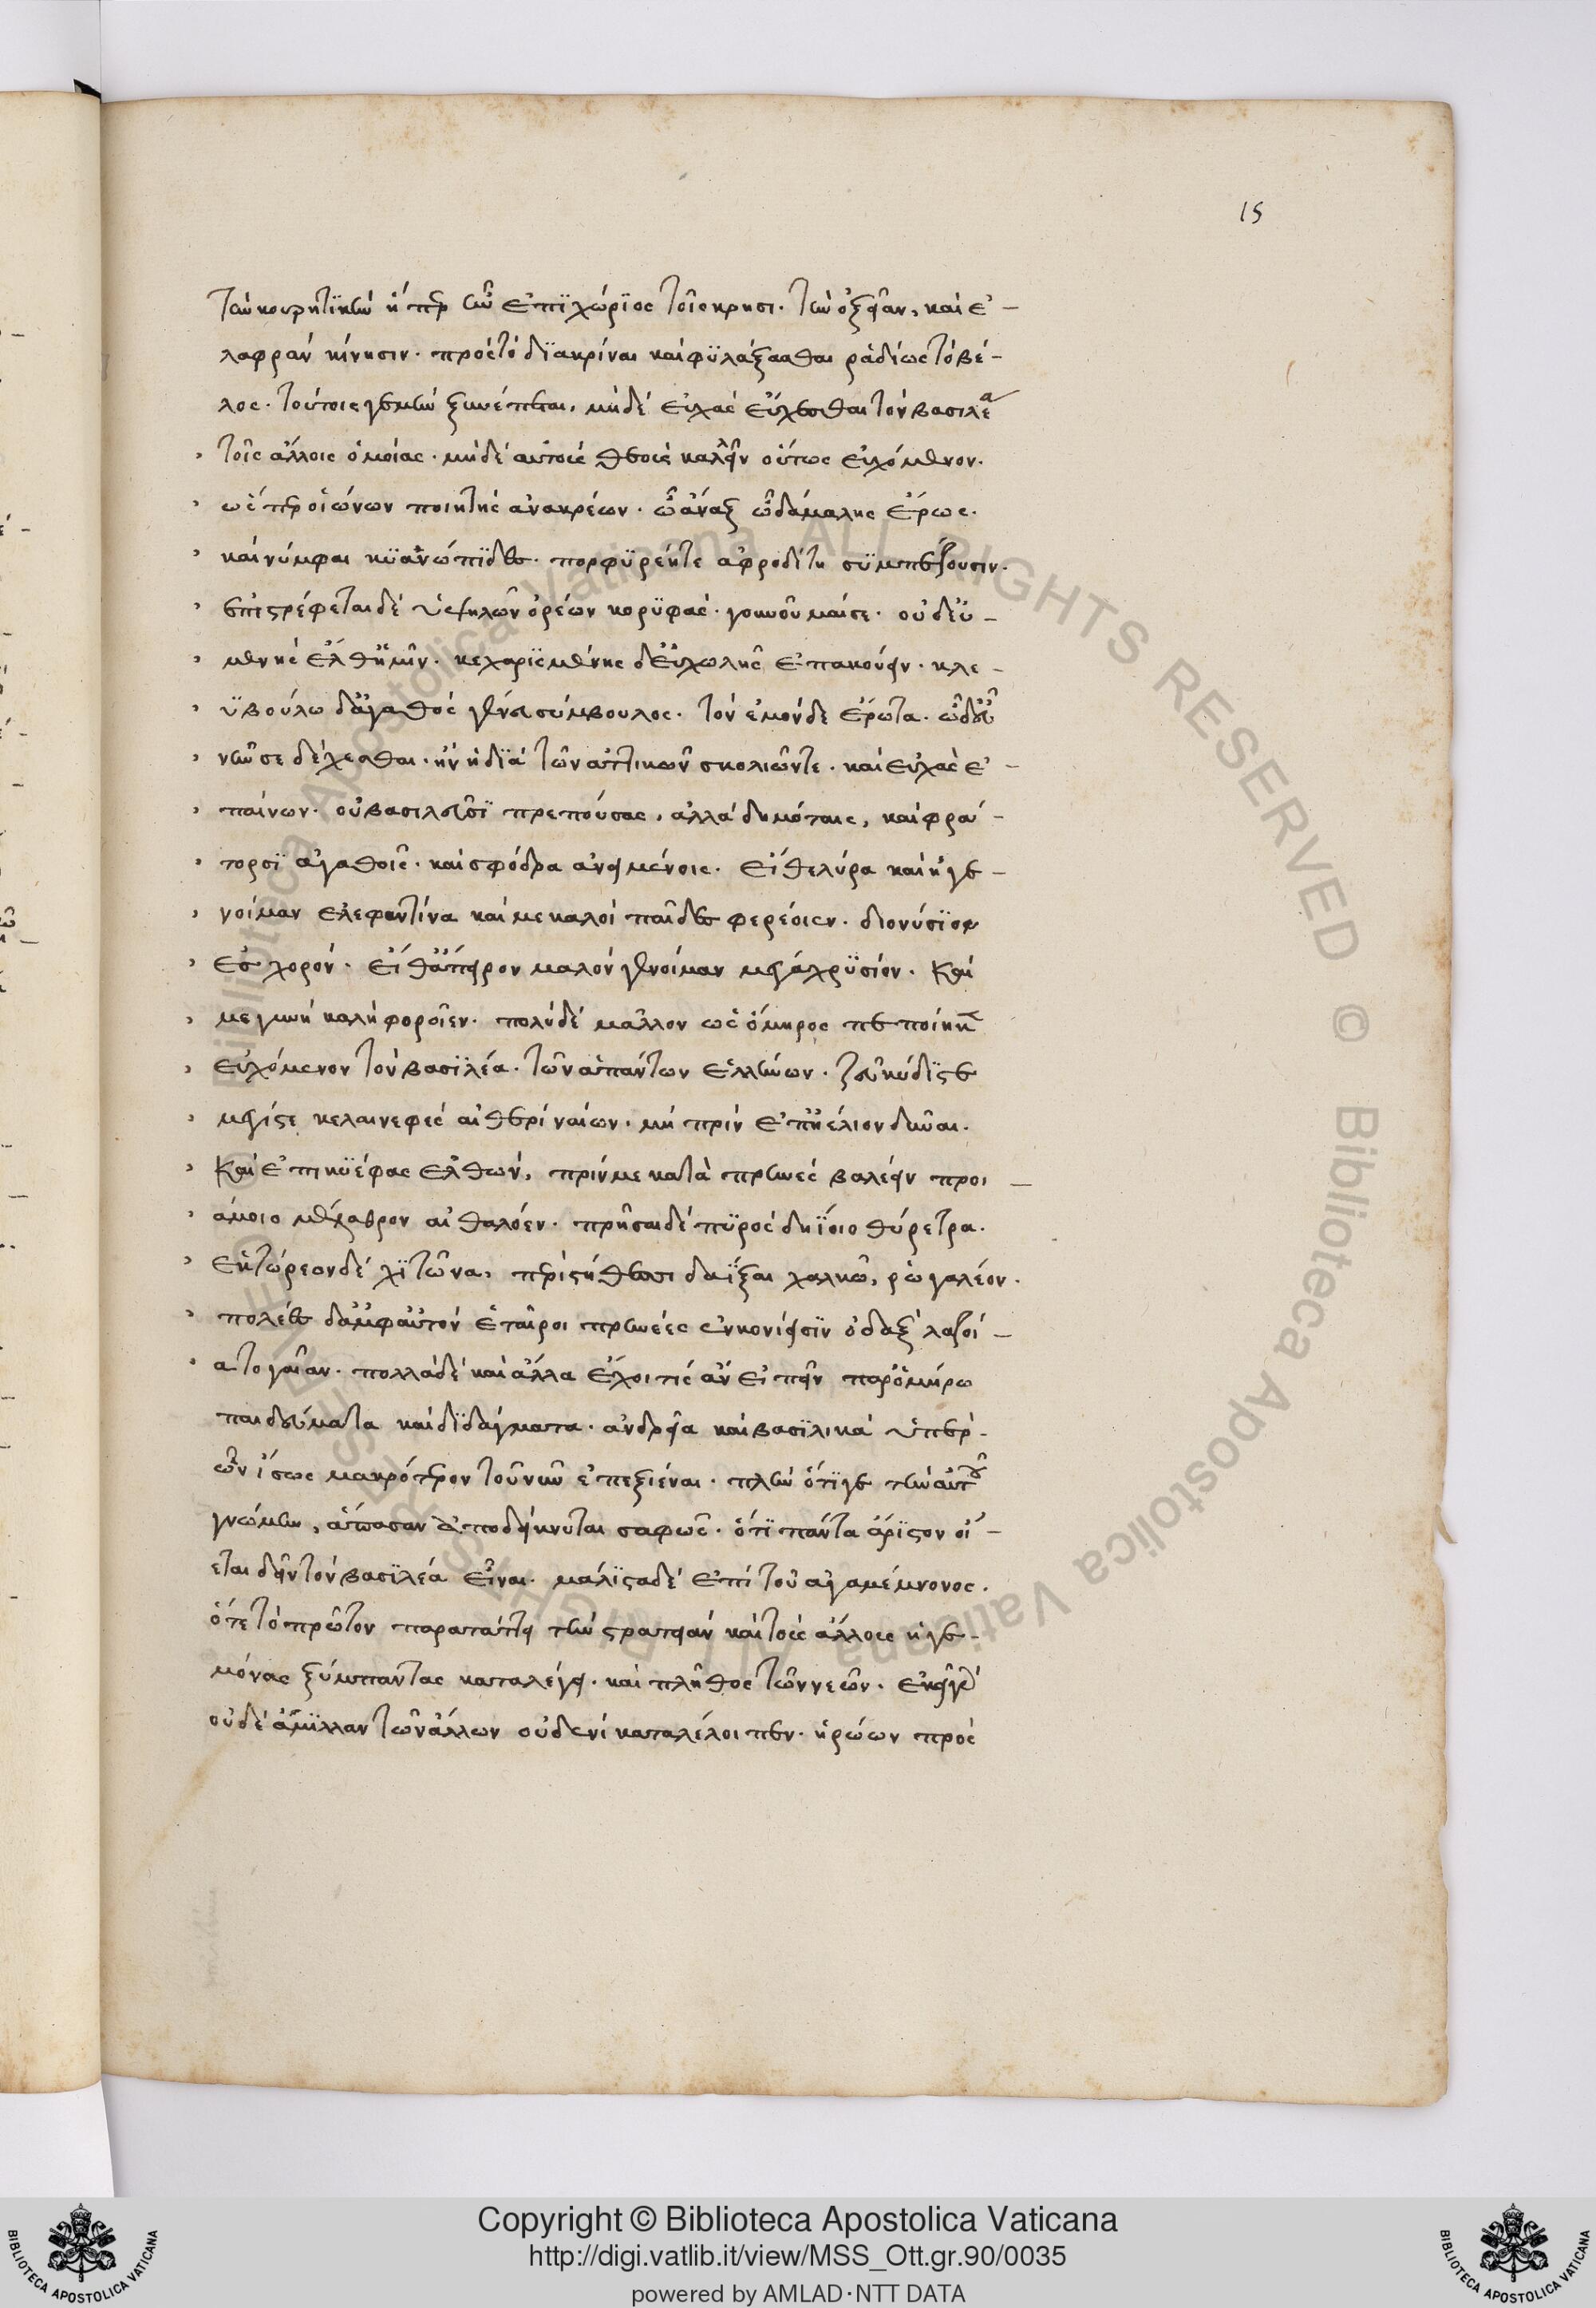 15
τὴν κουρητικὴν ἥπερ ἦν ἐπϊχώρϊος τοῖς κρησι. τὴν ὀξεῖαν, καὶ ἐ-
λαφρὰν κίνησιν. πρὸς τὸ δϊακρίναι καὶ φϋλάξασθαι ῥαδίως τὸ βέ-
λος. τούτοις γε μὴν ξυνέπεται, μὴ δὲ εὐχὰς εὔχεσθαι τὸν βασιλέα
τοῖς ἄλλοις ὁμοίας. μὴ δὲ αὐτοὺς θεοὺς καλεῖν οὕτως εὐχόμενον.
ὡς ὁ ἰώνων ποιητὴς ἀνακρέων. ὦ ἄναξ ὦ δαμάλης ἔρως.
καὶ νύμφαι κϋανώπϊδες. πορφϋρέη τε ἀφροδίτη σϋμπαίζουσιν.
ἐπιστρέφεται δὲ ὑψηλῶν ὀρέων κορϋφάς. γουνοῦμαί σε. σὺ δ' εὐ-
μενὴς ἔλθ' ἡμῖν. κεχαρϊσμένης δ' εὐχωλῆς ἐπακούειν. κλε-
ϋβούλω δ' ἀγαθὸς γενεῦ σύμβουλος. τὸν ἐμὸν δὲ ἔρωτα. ὦ δεῦ
νῦσε δέχεσθαι. ἢ νὴ δϊὰ τῶν ἀττικῶν σκολιῶν τε. καὶ εὐχὰς ἐ-
παίνων. οὐ βασιλεῦσϊ πρεπούσας, ἀλλὰ δημόταις, καὶ φρά-
τορσϊ ἀγαθοῖς. καὶ σφόδρα ἀνειμένοις. εἴθε λύρα καλὴ γε-
νοίμαν ἐλεφαντίνα καί με καλοὶ παῖδες φερέοιεν. διονύσϊον
ἐς χορόν. εἴθ' ἄπηρον μαλὸν γενοίμαν μέγα χρϋσίον. καί
με γυνὴ καλὴ φοροῖεν. πολὺ δὲ μᾶλλον ὡς ὅμηρος πεποίηκε
εὐχόμενον τὸν βασϊλέα. τῶν ἁπάντων ἑλλήνων. ζεῦ κύδϊστε
μέγιστε κελαινεφὲς αἰθέρι ναίων. μὴ πρὶν ἐπ' ἠέλιον δῦναι.
καὶ ἐπι κϋέφας ἐλθών, πρίν με κατὰ πρηνὲς βαλέειν πρι-
άμοιο μέλαθρον αἰθαλόεν. πρῆσαι δὲ πϋρὸς δηΐοιο θύρετρα.
ἑκτόρεον δὲ χϊτῶνα, περὶ στήθεσσι δαΐξαι χαλκῶ, ῥωγαλέον.
πολέες δ' ἀμφ' αὐτὸν ἑταῖροι πρηνέες ἐν κονίησϊν ὀδὰξ λαζοί-
ατο γαῖαν. πολλὰ δὲ καὶ ἄλλα ἔχοι τις ἂν εἰπεῖν παρ' ὁμήρω
παιδεύματα καὶ δϊδάγματα. ἀνδρεῖα καὶ βασϊλικὰ ὑπὲρ
ὧν ἴσως μακρότερον τοῦ νῦν ἐπεξιέναι. πλὴν ὅτϊ γε τὴν αὐτοῦ
γνώμην, ἅπασαν ἀποδείκνυται σαφῶς. ὅτϊ πάντα ἄρϊστον οἴ-
εται δεῖν τὸν βασϊλέα εἶναι. μάλϊστα δὲ ἐπὶ τοῦ ἀγαμέμνονος.
ὅτε τὸ πρῶτον παρατάττει τὴν στρατιὰν καὶ τοὺς ἄλλους ἡγε-
μόνας ξύμπαντας καταλέγει. καὶ πλῆθος τῶν νεῶν. ἐκεῖ γὰρ
οὐδὲ ἅμϊλλαν τῶν ἄλλων οὐδενὶ καταλέλοιπεν. ἡρώων πρὸς
Copyright © Biblioteca Apostolica Vaticana
http://digi.vatlib.it/view/MSS_Ott.gr.90/0035
powered by AMLAD·NTT DATA